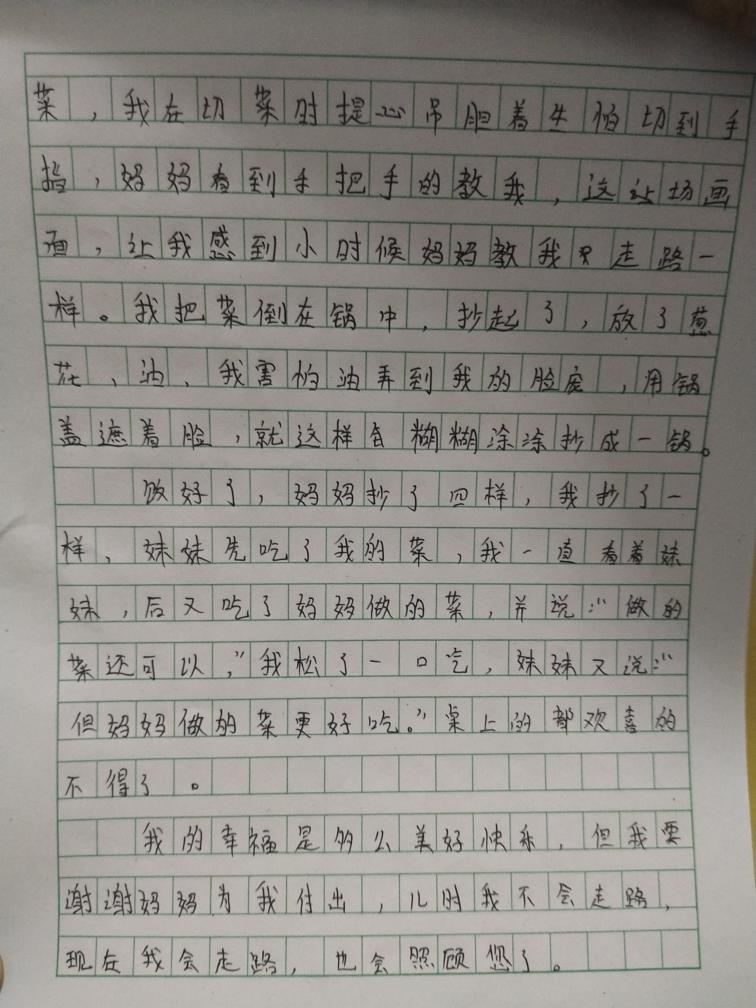 菜，我在切菜时提心吊胆着生怕切到手
指，妈妈看到手把手的教我，这让场画
面，让我感到小时候妈妈教我只走路一
样。我把菜倒在锅中，抄起了，放了葱
花、油、我害怕油弄到我的脸庞，用锅
盖遮着脸，就这样糊糊涂涂抄成一锅。
饭好了，妈妈抄了四样，我抄了一
样，妹妹先吃了我的菜，我一直看着妹
妹，后又吃了妈妈做的菜，并说：“做的
菜还可以，”我松了一口气，妹妹又说：“
但妈妈做的菜更好吃。”桌上的都欢喜的
不得了。
我的幸福是多么美好快乐，但我要
谢谢妈妈为我付出，儿时我不会走路，
现在我会走路，也会照顾您了。